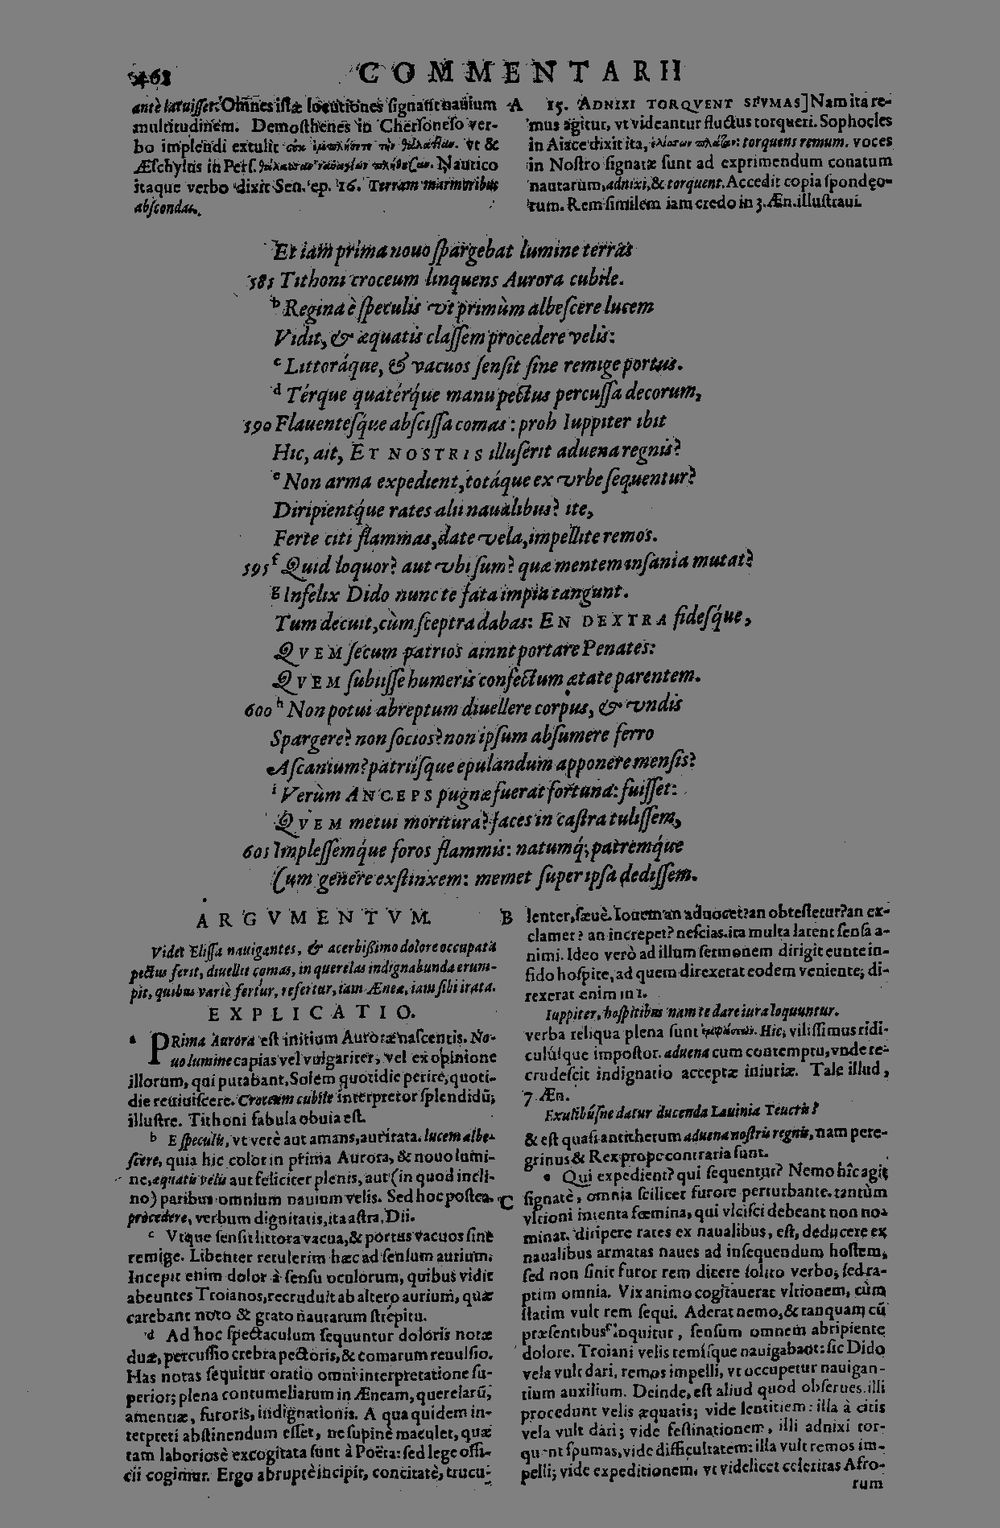 462
COMMENTARII
antè latuisset. Omnes istæ locutiones signant nauium
multitudinem. Demosthenes in Chersoneso ver-
bo implendi extulit vt &
Æschylus in Pers. Nautico
itaque verbo dixit Sen. ep. 16. Terram marmoribus
abscondat.
A
15. ADNIXI TORQVENT SPVMAS] Nam ita re-
mus agitur, vt videantur fluctus torqueri. Sophocles
in Aiace dixit ita, torquens remum. voces
in Nostro signatæ sunt ad exprimendum conatum
nautarum, adnixi, & torquent. Accedit copia spondeo-
rum. Rem similem iam credo in 3. Æn. illustraui.
Et iam prima nouo spargebat lumine terras
585 Tithoni croceum linquens Aurora cubile.
b Regina è speculis vt primùm albescere lucem
Vidit, & æquatis classem procedere velis:
c Littoráque, & vacuos sensit sine remige portus.
d Térque quatérque manu pectus percussa decorum,
590 Flauentesque abscissa comas: proh Iuppiter ibit
Hic, ait, ET NOSTRIS illuserit aduena regnis?
e Non arma expedient, totáque ex vrbe sequentur?
Diripientque rates alii naualibus? ite,
Ferte citi flammas, date vela, impellite remos.
595 f Quid loquor? aut vbi sum? quæ mentem insania mutat?
g Infelix Dido nunc te fata impia tangunt.
Tum decuit, cùm sceptra dabas: EN DEXTRA fidesque,
QVEM secum patrios aiunt portare Penates:
QVEM subiisse humeris confectum ætate parentem.
600 h Non potui abreptum diuellere corpus, & vndis
Spargere? non socios? non ipsum absumere ferro
Ascanium? patriisque epulandum apponere mensis?
i Verùm ANCEPS pugnæ fuerat fortuna: fuisset:
QVEM metui moritura? faces in castra tulissem,
605 Implessemque foros flammis: natumq; patremque
Cum genere exstinxem: memet super ipsa dedissem.
ARGVMENTVM.
Videt Elissa nauigantes, & acerbissimo dolore occupata
pectus ferit, diuellit comas, in querelas indignabunda erum-
pit, quibus variè fertur, refertur, iam Æneæ, iam sibi irata.
EXPLICATIO.
a PRima Aurora est initium Auroræ nascentis. No-
uo lumine capias vel vulgariter, vel ex opinione
illorum, qui putabant, Solem quotidie perire, quoti-
die reuiuiscere. Croceum cubile interpretor splendidũ;
illustre. Tithoni fabula obuia est.
b E speculis, vt verè aut amans, aut irata. lucem albe-
scere, quia hic color in prima Aurora, & nouo lumi-
ne, æquatis velis aut feliciter plenis, aut (in quod incli-
no) paribus omnium nauium velis. Sed hoc postea.
procedere, verbum dignitatis, ita astra, Dii.
c Vtque sensit littora vacua, & portus vacuos sine
remige. Libenter retulerim hæc ad sensum aurium.
Incepit enim dolor à sensu oculorum, quibus vidit
abeuntes Troianos, recruduit ab altero aurium, quæ
carebant noto & grato nautarum strepitu.
d Ad hoc spectaculum sequuntur doloris notæ
duæ, percussio crebra pectoris, & comarum reuulsio.
Has notas sequitur oratio omni interpretatione su-
perior; plena contumeliarum in Æneam, querelarũ,
amentiæ, furoris, indignationis. A qua quidem in-
terpreti abstinendum esset, ne supinè maculet, quæ
tam laboriosè excogitata sunt à Poëta: sed lege offi-
cii cogimur. Ergo abruptè incipit, concitatè, trucu-
B
lenter, sæuè. Iouem an aduocet? an obtestetur? an ex-
clamet? an increpet? nescias. ita multa latent sensa a-
nimi. Ideo verò ad illum sermonem dirigit eunte in-
fido hospite, ad quem direxerat eodem veniente; di-
rexerat enim in 1.
Iuppiter, hospitibus nam te dare iura loquuntur.
verba reliqua plena sunt Hic, vilissimus ridi-
culúsque impostor. aduena cum contemptu, vnde re-
crudescit indignatio acceptæ iniuriæ. Tale illud,
7 Æn.
Exulibúsne datur ducenda Lauinia Teucris?
& est quasi antithetum aduena nostris regnis, nam pere-
grinus & Rex prope contraria sunt.
e Qui expedient? qui sequentur? Nemo hîc agit
C
signatè, omnia scilicet furore perturbante. tantùm
vltioni intenta fœmina, qui vlcisci debeant non no-
minat. diripere rates ex naualibus, est, deducere ex
naualibus armatas naues ad insequendum hostem,
sed non sinit furor rem dicere solito verbo; sed ra-
ptim omnia. Vix animo cogitauerat vltionem, cùm
statim vult rem sequi. Aderat nemo, & tanquam cũ
præsentibus loquitur, sensum omnem abripiente
dolore. Troiani velis remisque nauigabant: sic Dido
vela vult dari, remos impelli, vt occupetur nauigan-
tium auxilium. Deinde, est aliud quod obserues. illi
procedunt velis æquatis; vide lentitiem: illa à citis
vela vult dari; vide festinationem, illi adnixi tor-
quent spumas, vide difficultatem: illa vult remos im-
pelli; vide expeditionem, vt videlicet celeritas Afro-
rum